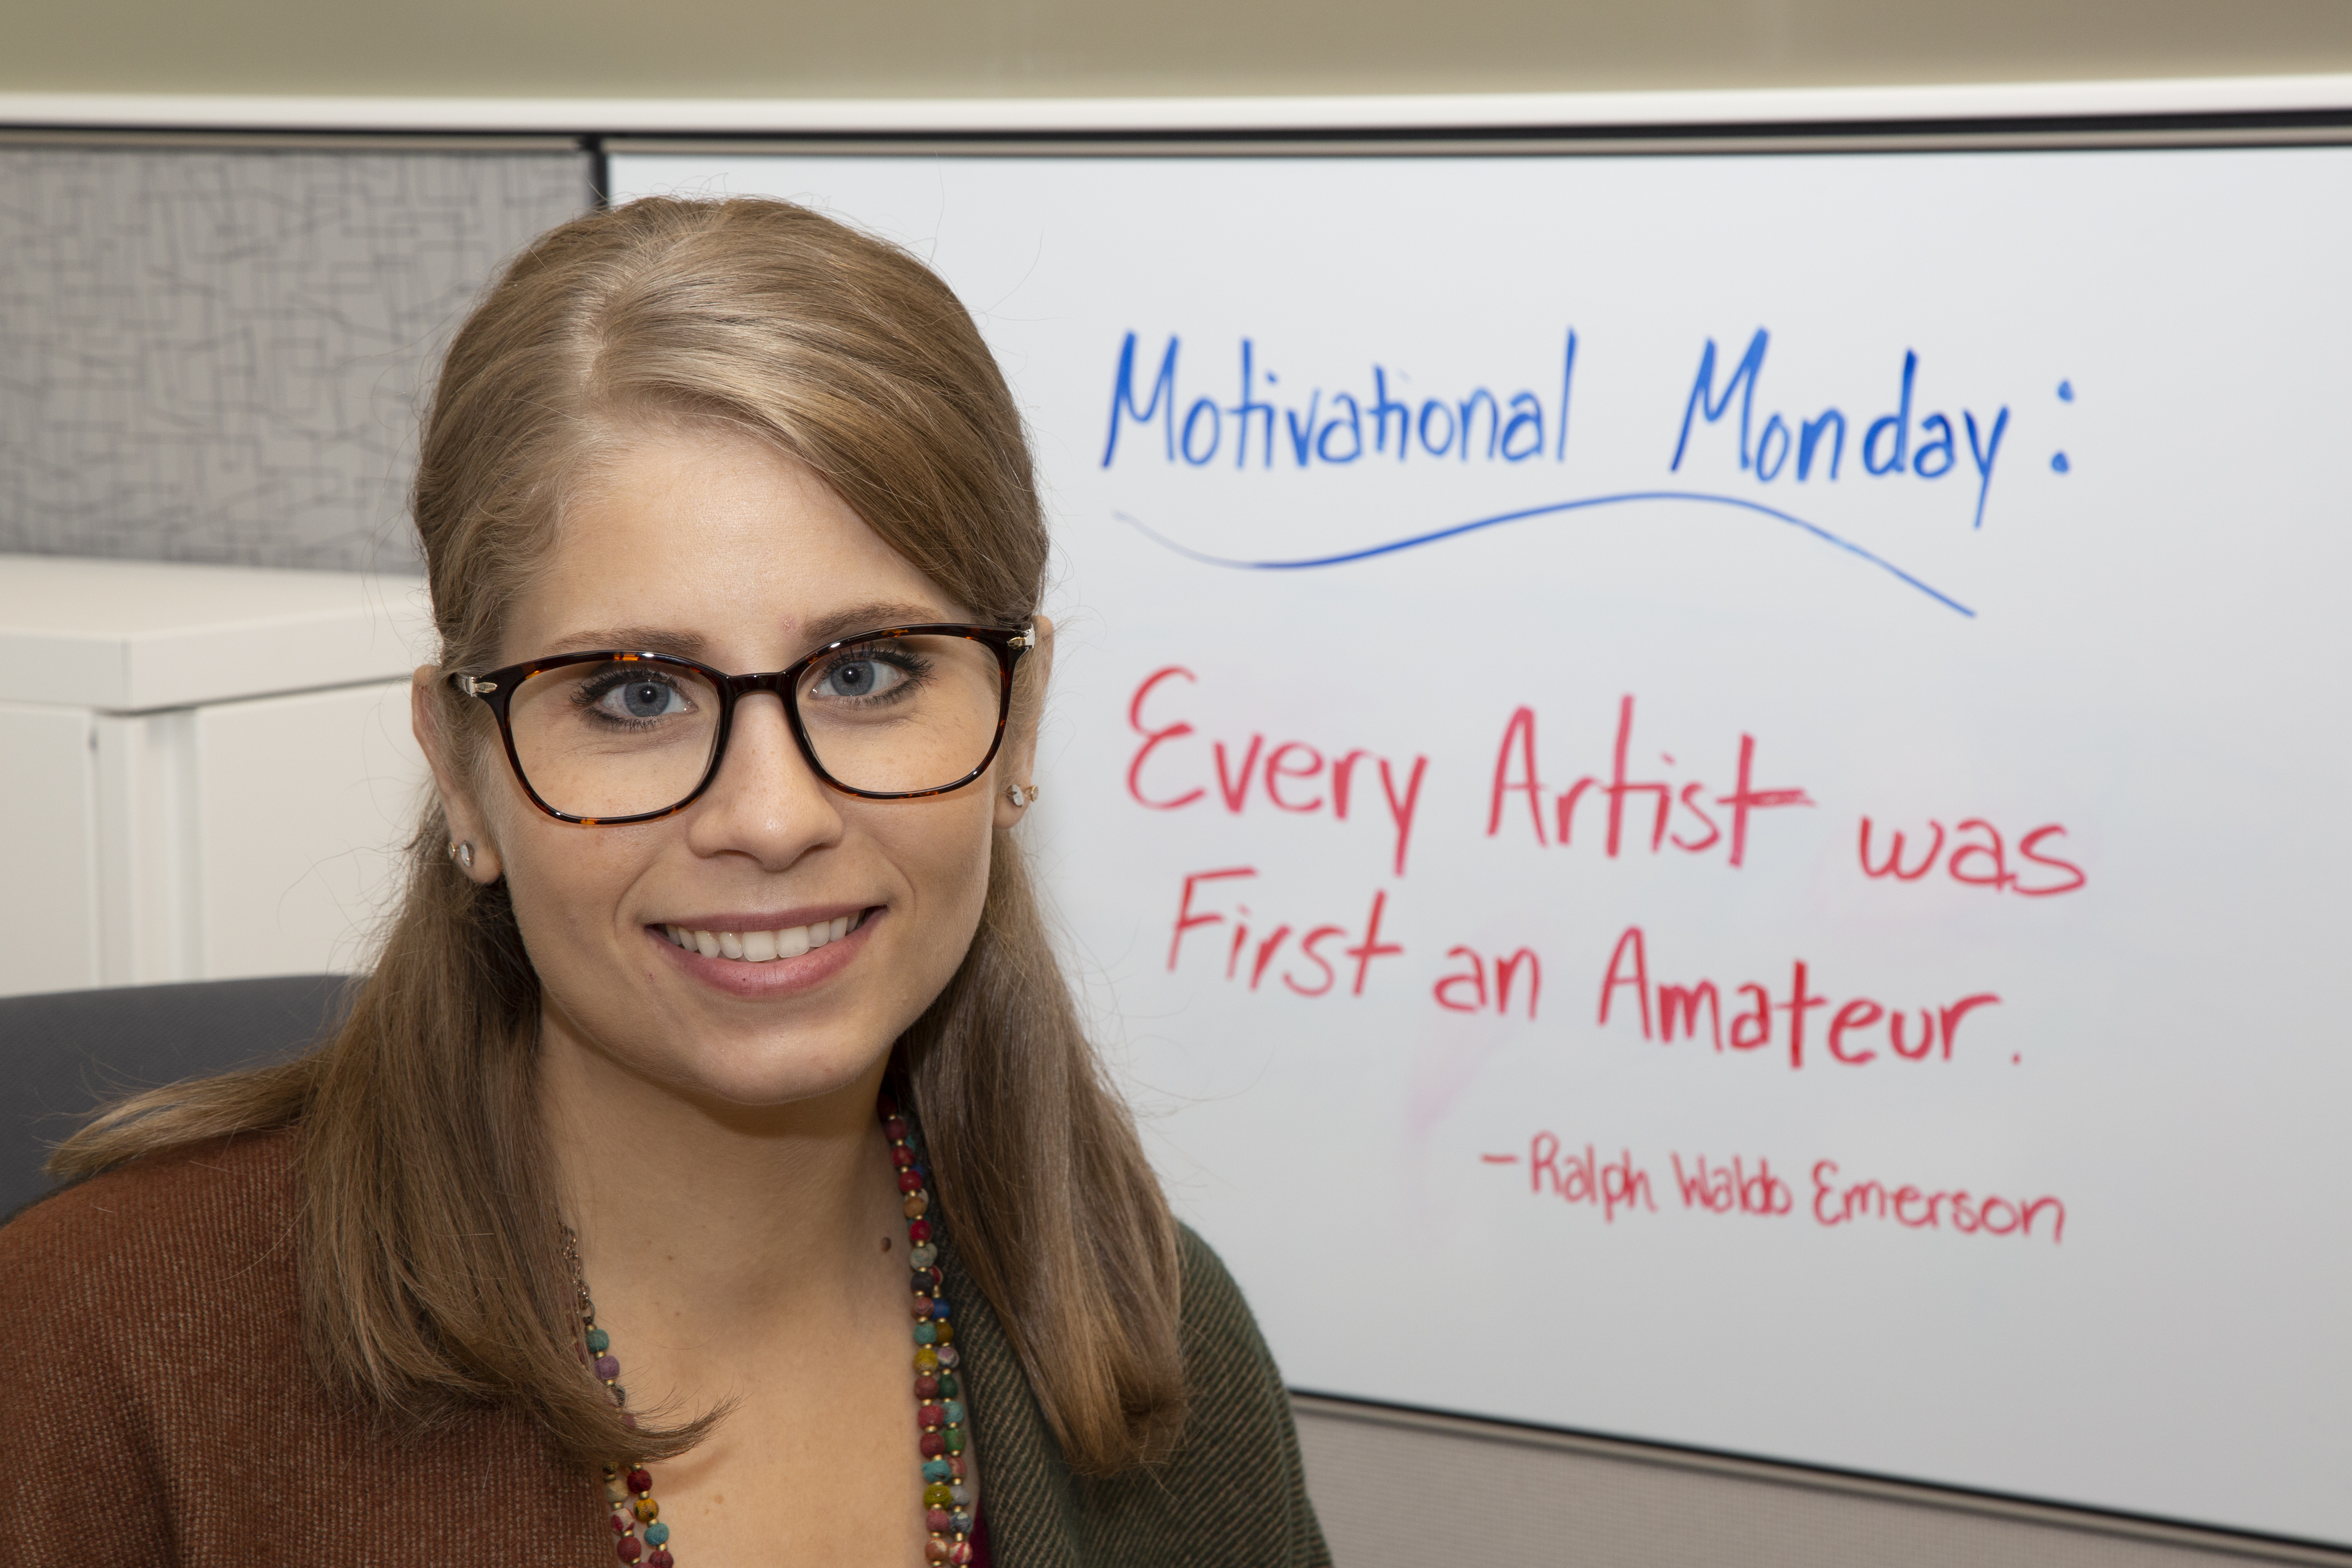 Motivational Monday:
Every Artist was
First an Amateur.
-Ralph Waldo Emerson